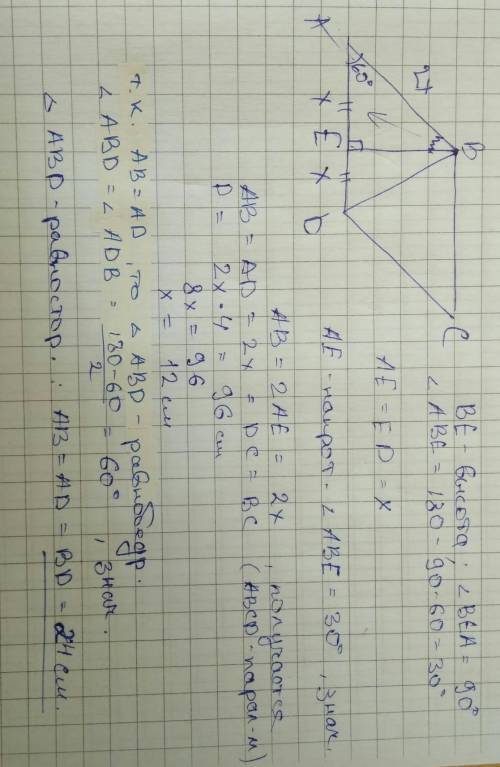 B
C
A
E
D
60°
24
x
x
BE - высота; ∠BEA = 90°
∠ABE = 180 - 90 - 60 = 30°
AE = ED = x
AE - напрот. ∠ABE = 30°, знач.
AB = 2AE = 2x, получается
AB = AD = 2x = DC = BC (ABCD - парал-м)
P = 2x · 4 = 96 см
8x = 96
x = 12 см
т.к. AB = AD, то △ABD - равнобедр.
∠ABD = ∠ADB = 180-60/2 = 60°, знач.
△ABD - равностор.: AB = AD = BD = 24 см.